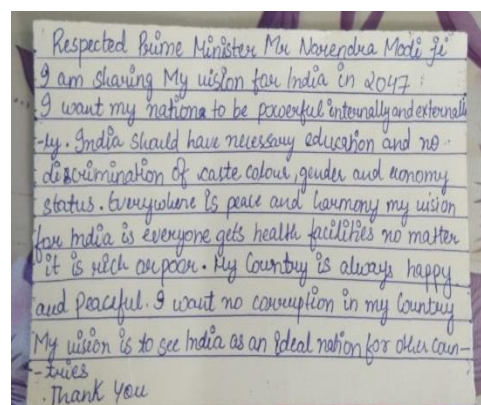 Respected Prime Minister Mr Narendra Modi ji
I am sharing My vision for India in 2047 :
I want my nation to be powerful internally and external
-ly. India should have necessary education and no
discrimination of caste colour, gender and economy
status. Everywhere is peace and harmony my vision
for India is everyone gets health facilities no matter
it is rich or poor. My Country is always happy
and Peaceful. I want no corruption in my Country
My vision is to see India as an ideal nation for other coun-
-tries
Thank You